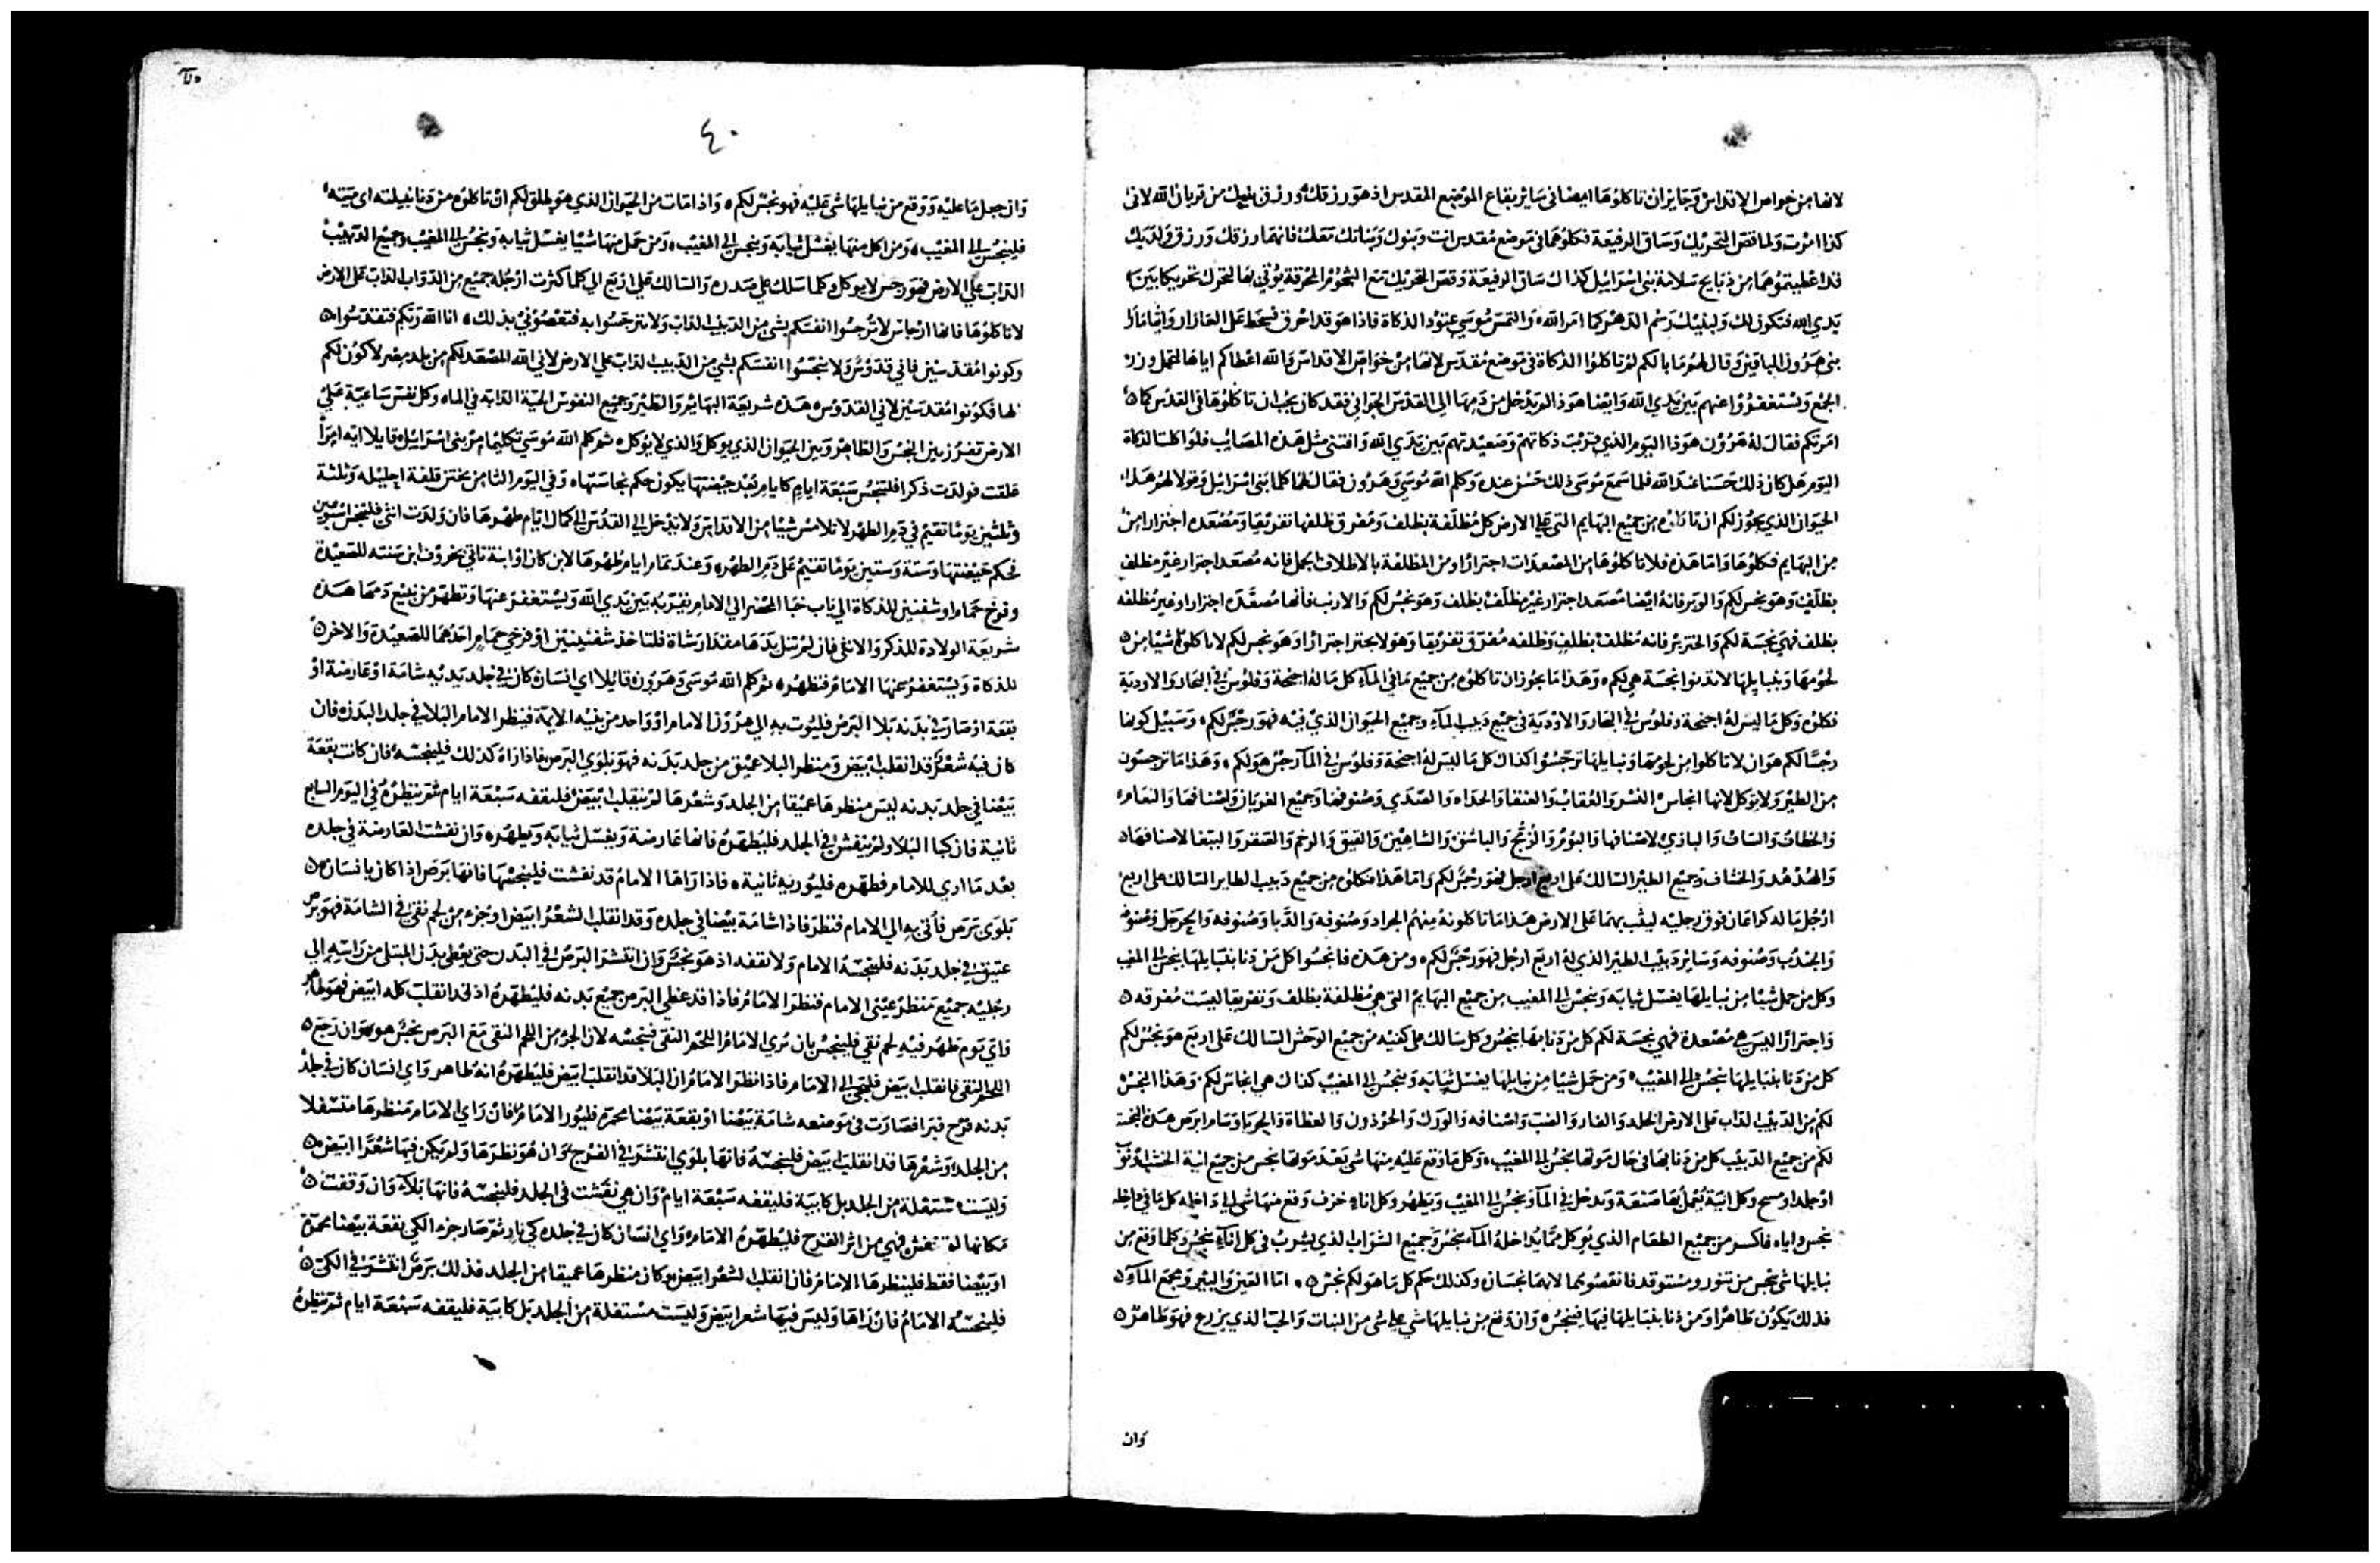 لانها من خواص الاقداس وجايز ان تاكلوها ايضا في ساير بقاع الموضع المقدس اذ هو رزقك ورزق بنيك من قربان الله لاني
كذا امرت ولما قص التحريك وساق الرفيعة فكلوهما في موضع مقدس انت وبنوك وبناتك معك فانهما رزقك ورزق ولديك
قد اعطيتموهما من ذبايح سلامة بني اسراييل كذاك ساق الرفيعة وقص التحريك مع الشحوم المحرقة يوتي بها لتحرك تحريكا بين
يدي الله فتكون لك ولبنيك رسم الدهر كما امر الله والتمس موسي عتود الذكاة فاذا هو قد احرق فسخط علي العازار وايثامار
بني هرون الباقين وقال لهم ما بالكم لم تاكلوا الذكاة في موضع مقدس لانها من خواص الاقداس والله اعطاكم اياها لتحمل وزر
الجمع ويستغفروا عنهم بين يدي الله وايضا هوذا لم يدخل من دمها الي القدس الجواني فقد كان يجب ان تاكلوها في القدس كما
امرتكم فقال له هرون هوذا اليوم الذي قربت ذكاتهم وصعيدتهم بين يدي الله وافتني مثل هذه المصايب فلو اكلت الذكاة
اليوم هل كان ذلك حسنا عند الله فلما سمع موسي ذلك حسن عنده وكلم الله موسي وهرون فقال لهما كلما بني اسراييل وقولا لهم هذا
الحيوان الذي يجوز لكم ان تاكلوه من جميع البهايم التي علي الارض كل مظلفة بظلف ومفرق ظلفها تفريقا ومصعده اجترارا من
من البهايم فكلوها واما هذه فلا تاكلوها من المصعدات اجترارا ومن المظلفة بالاظلاف الجمل فانه مصعد اجترار غير مظلف
بظلف وهو نجس لكم والوبر فانه ايضا مصعد اجترار غير مظلف بظلف وهو نجس لكم والارنب فانها مصعده اجترارا وغير مظلفه
بظلف فهي نجسة لكم والخنزير فانه مظلف بظلف وظلفه مفرق تفريقا وهو لا يجتر اجترارا وهو نجس لكم لا تاكلوا شيا من
لحومها وبنبايلها لا تدنوا نجسة هي لكم وهذا ما يجوز ان تاكلوه من جميع ما في الماء كل ما له اجنحة وفلوس في البحار والاودية
فكلوه وكل ما ليس له اجنحة وفلوس في البحار والاودية في جميع دبيب الماء وجميع الحيوان الذي فيه فهو رجس لكم وسبيل كونها
رجسا لكم هو ان لا تاكلوا من لحومها ونبايلها ترجسوا كذاك كل ما ليس له اجنحة وفلوس في الماء رجس هو لكم وهذا ما ترجسون
من الطير ولا يوكل لانها انجاس النسر والعقاب والعنقا والحداه والصدي وصنوفها وجميع الغربان واصنافها والنعام
والخطاف والساف والبازي لاصنافها والبوم والزمج والباشق والشاهين والقيق والرخم والصقر والببغا لاصنافها
والهدهد والخشاف وجميع الطير السالك علي اربع ارجل فهو رجس لكم واما هذا فتكلوه من جميع دبيب الطاير السالك علي اربع
ارجل ما له كراعان فوق رجليه ليثب بهما علي الارض هذا ما تاكلونه منهم الجراد وصنوفه والدبا وصنوفه والحرجل وصنوفه
والجندب وصنوفه وساير دبيب الطير الذي له اربع ارجل فهو رجس لكم ومن هذه فانجسوا كل من دنا بنبايلها ينجس الي المغيب
وكل من حمل شيا من نبايلها يغسل ثيابه وينجس الي المغيب من جميع البهايم التي هي مظلفة بظلف وتفريقا ليست مفرقه
واجترارا ليس هي مصعدة فهي نجسة لكم كل من دنا بها ينجس وكل سالك علي كفيه من جميع الوحش السالك علي اربع هو نجس لكم
كل من دنا بنبايلها ينجس الي المغيب ومن حمل شيا من نبايلها يغسل ثيابه وينجس الي المغيب كذاك هي انجاس لكم وهذا النجس
لكم من الدبيب الداب علي الارض الخلد والفار والضب واصنافه والورل والحرذون والعظاة والحربا وسام ابرص هذه النجسة
لكم من جميع الدبيب كل من دنا بها في حال موتها ينجس الي المغيب وكل ما وقع عليه منها شي بعد موتها ينجس من جميع انية الخشب او ثوب
او جلد او مسح وكل انية يعمل بها صنعة وتدخل في الماء وتنجس الي المغيب وتطهر وكل اناء خزف وقع منها شي الي داخله كل ما في داخله
نجس واياه فاكسر من جميع الطعام الذي يوكل مما يداخله الماء ينجس وجميع الشراب الذي يشرب في كل اناء نجس وكلما وقع من
نبايلها شي نجس من تنور ومستوقد فانقضوهما لانهما نجسان وكذلك حكم كل ما هو لكم نجس اما العين والبير ومجمع الماء
فذلك يكون طاهرا ومن دنا بنبايلها فيها فينجس وان وقع من نبايلها شي علي شي من النبات والحب الذي يزرع فهو طاهر
وان
٤٠
وان جعل ماء عليه ووقع من نبايلها شي عليه فهو نجس لكم واذا مات من الحيوان الذي هو مطلق لكم ان تاكلوه من دنا بنبيلته اي ميتته
فلينجس الي المغيب ومن اكل منها يغسل ثيابه وينجس الي المغيب ومن حمل منها شيا يغسل ثيابه وينجس الي المغيب وجميع الدبيب
الداب علي الارض فهو رجس لا يوكل وكلما سلك علي صدره والسالك علي اربع الي كلما كثرت ارجله جميع من الدواب الداب علي الارض
لا تاكلوها فانها ارجاس لا ترجسوا انفسكم بشي من الدبيب الداب ولا تترجسوا به فتعصوني بذلك انا الله ربكم فتقدسوا
وكونوا مقدسين فاني قدوس ولا تنجسوا انفسكم بشي من الدبيب الداب علي الارض لاني الله المصعد لكم من بلد مصر لاكون لكم
الها فكونوا مقدسين لاني القدوس هذه شريعة البهايم والطير وجميع النفوس الحية الدابة في الماء وكل نفس ساعية علي
الارض تفرز بين النجس والطاهر وبين الحيوان الذي يوكل والذي لا يوكل ثم كلم الله موسي تكليما مر بني اسراييل قايلا ايه امراة
علقت فولدت ذكرا فلتنجس سبعة ايام كايام بعد حيضتها يكون حكم نجاستها وفي اليوم الثامن يختن قلفة احليله وثلثة
وثلثين يوما تقيم في دم الطهر لا تلامس شيا من الاقداس ولا تدخل الي القدس الي كمال ايام طهرها فان ولدت انثي فلتنجس اسبوعين
كحكم حيضتها وستة وستين يوما تقيم علي دم الطهر وعند تمام ايام طهرها لابن كان او ابنة تاتي بخروف ابن سنته للصعيدة
وفرخ حمام او شفنين للذكاة الي باب خبا المحضر الي الامام يقربه بين يدي الله ويستغفر عنها وتطهر من نبيع دمها هذه
شريعة الولادة للذكر والانثي فان لم تنل يدها مقدار شاة فلتاخذ شفنينين او فرخي حمام احدهما للصعيدة والاخر
للذكاة ويستغفر عنها الامام فتطهر ثم كلم الله موسي وهرون قايلا اي انسان كان في جلد بدنه شامة او عارضة او
بقعة او صار في بدنه بلا البرص فليوت به الي هرون الامام او واحد من بنيه الايمة فينظر الامام البلا في جلد البدن فان
كان فيه شعر قد انقلب ابيض ومنظر البلا عميق من جلد بدنه فهو بلوي البرص فاذا راه كذلك فلينجسه فان كانت بقعة
بيضا في جلد بدنه ليس منظرها عميقا من الجلد وشعرها لم ينقلب ابيض فليقفه سبعة ايام ثم ينظره في اليوم السابع
ثانية فان كبا البلا ولم ينفش في الجلد فليطهره فانها عارضة ويغسل ثيابه ويطهر وان نفشت العارضة في جلده
بعد ما اري للامام فطهره فليوريه ثانية فاذا راها الامام قد نفشت فلينجسها فانها برص اذا كان بانسان
بلوي برص فأتي به الي الامام فنظر فاذا شامة بيضا في جلده وقد انقلب الشعر ابيض او جزء من لحم نقي في الشامة فهو برص
عتيق في جلد بدنه فلينجسه الامام ولا تقفه اذ هو نجس وان انتشر البرص في البدن حتي يغطي بدن المبتلي من راسه الي
رجليه جميع منظر عيني الامام فنظر الامام فاذا قد غطي البرص جميع بدنه فليطهره اذ قد انقلب كله ابيض فهو طاهر
واي يوم ظهر فيه لحم نقي فلينجس بان يري الامام اللحم النقي فينجسه لان الجزء من اللحم النقي مع البرص نجس هو وان رجع
اللحم النقي فانقلب ابيض فليجي الي الامام فاذا نظر الامام ان البلا قد انقلب ابيض فليطهره انه طاهر واي انسان كان في جلد
بدنه قرح فبرا فصارت في موضعه شامة بيضا او بقعة بيضا محمرة فليور الامام فان راي الامام منظرها متسفلا
من الجلد وشعرها قد انقلب ابيض فلينجسه فانها بلوي انتشر في القرح وان هو نظرها ولم يكن فيها شعر ابيض
وليست مستفلة من الجلد بل كابية فليقفه سبعة ايام وان هي نفشت في الجلد فلينجسه فانها بلاء وان وقفت
مكانها لم تنفش فهي من اثر القرح فليطهره الامام واي انسان كان في جلده كي نار ثم صار جزء الكي بقعة بيضا محمرة
او بيضا فقط فلينظرها الامام فان انقلب الشعر ابيض وكان منظرها عميقا من الجلد فذلك برص انتشر في الكي
فلينجسه الامام فان راها وليس فيها شعر ابيض وليست مستفلة من الجلد بل كابية فليقفه سبعة ايام ثم ينظره